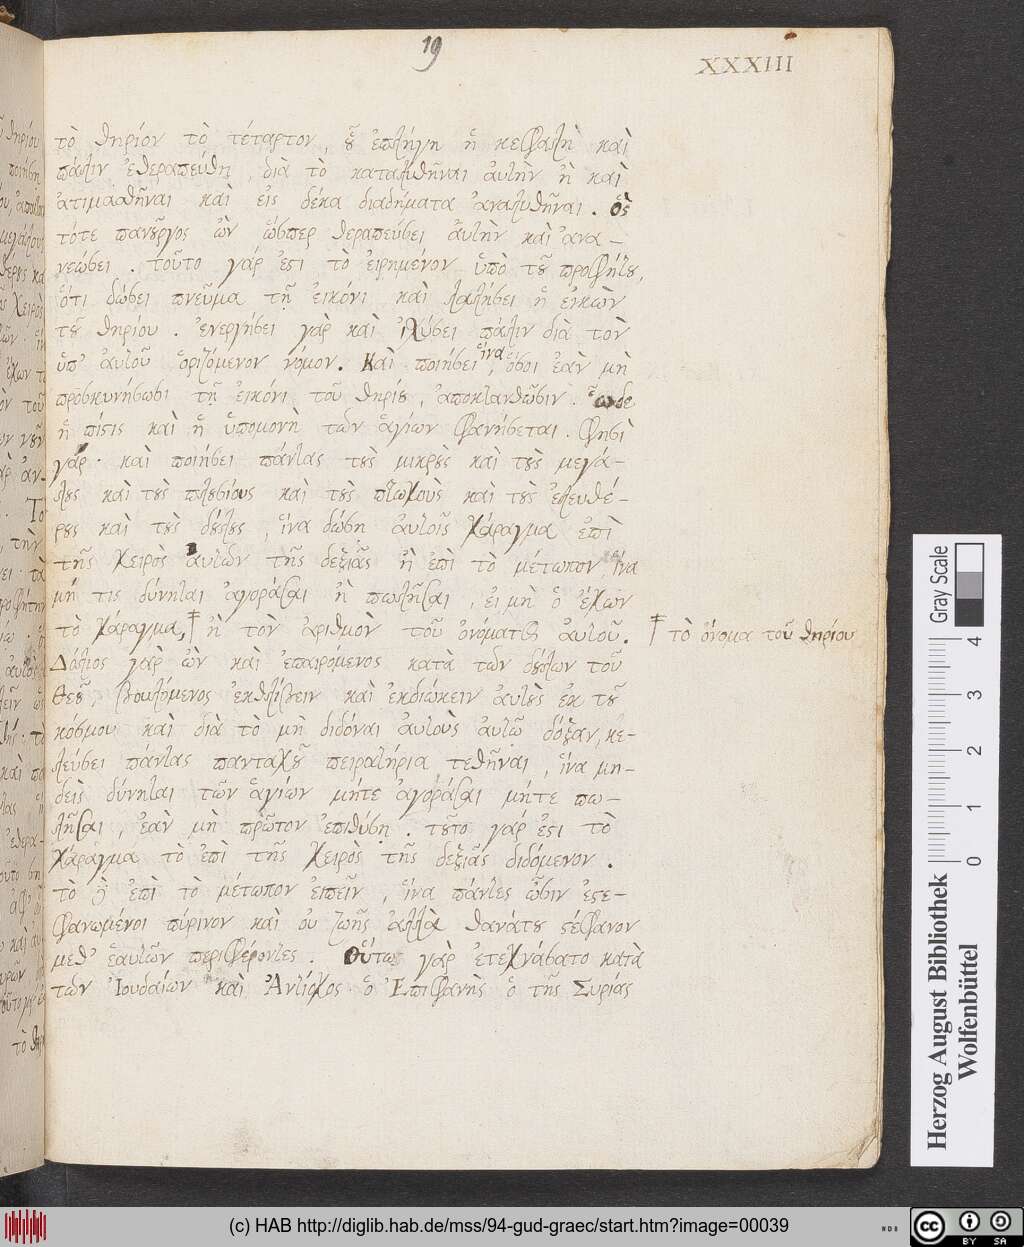 19
XXXIII
τὸ θηρίον τὸ τέταρτον, οὗ ἐπλήγη ἡ κεφαλὴ καὶ
πάλιν ἐθεραπεύθη, διὰ τὸ καταλυθῆναι αὐτὴν ἢ καὶ
ἀτιμασθῆναι καὶ εἰς δέκα διαδήματα ἀναλυθῆναι. ὃς
τότε πανοῦργος ὢν ὥσπερ θεραπεύσει αὐτὴν καὶ ἀνα-
νεώσει. τοῦτο γάρ ἐστι τὸ εἰρημένον ὑπὸ τοῦ προφήτου,
ὅτι δώσει πνεῦμα τῇ εἰκόνι καὶ λαλήσει ἡ εἰκὼν
τοῦ θηρίου. ἐνεργήσει γὰρ καὶ ἰσχύσει πάλιν διὰ τὸν
ὑπ' αὐτοῦ ὁριζόμενον νόμον. Καὶ ποιήσει ἵνα, ὅσοι ἐὰν μὴ
προσκυνήσωσι τῇ εἰκόνι τοῦ θηρίου, ἀποκτανθῶσιν. ὧδε
ἡ πίστις καὶ ἡ ὑπομονὴ τῶν ἁγίων φανήσεται. φησὶ
γάρ· καὶ ποιήσει πάντας τοὺς μικροὺς καὶ τοὺς μεγά-
λους καὶ τοὺς πλουσίους καὶ τοὺς πτωχοὺς καὶ τοὺς ἐλευθέ-
ρους καὶ τοὺς δούλους, ἵνα δώσῃ αὐτοῖς χάραγμα ἐπὶ
τῆς χειρὸς αὐτῶν τῆς δεξιᾶς ἢ ἐπὶ τὸ μέτωπον, ἵνα
μή τις δύνηται ἀγοράσαι ἢ πωλῆσαι, εἰ μὴ ὁ ἔχων
τὸ χάραγμα, ἢ τὸν ἀριθμὸν τοῦ ὀνόματος αὐτοῦ.
τὸ ὄνομα τοῦ θηρίου
Δόλιος γὰρ ὢν καὶ ἐπαιρόμενος κατὰ τῶν δούλων τοῦ
Θεοῦ, βουλόμενος ἐκθλίβειν καὶ ἐκδιώκειν αὐτοὺς ἐκ τοῦ
κόσμου καὶ διὰ τὸ μὴ διδόναι αὐτοὺς αὐτῷ δόξαν, κε-
λεύσει πάντας πανταχοῦ πειρατήρια τεθῆναι, ἵνα μη-
δεὶς δύνηται τῶν ἁγίων μήτε ἀγοράσαι μήτε πω-
λῆσαι, ἐὰν μὴ πρῶτον ἐπιθύσῃ. τοῦτο γάρ ἐστι τὸ
χάραγμα τὸ ἐπὶ τῆς χειρὸς τῆς δεξιᾶς διδόμενον.
τὸ δὲ ἐπὶ τὸ μέτωπον εἰπεῖν, ἵνα πάντες ὦσιν ἐστε-
φανωμένοι πύρινον καὶ οὐ ζωῆς ἀλλὰ θανάτου στέφανον
μεθ' ἑαυτῶν περιφέροντες. Οὕτως γὰρ ἐτεχνάσατο κατὰ
τῶν Ἰουδαίων καὶ Ἀντίοχος ὁ Ἐπιφανὴς ὁ τῆς Συρίας
Herzog August Bibliothek
Wolfenbüttel
Gray Scale
0 1 2 3 4
(c) HAB http://diglib.hab.de/mss/94-gud-graec/start.htm?image=00039
CC BY SA